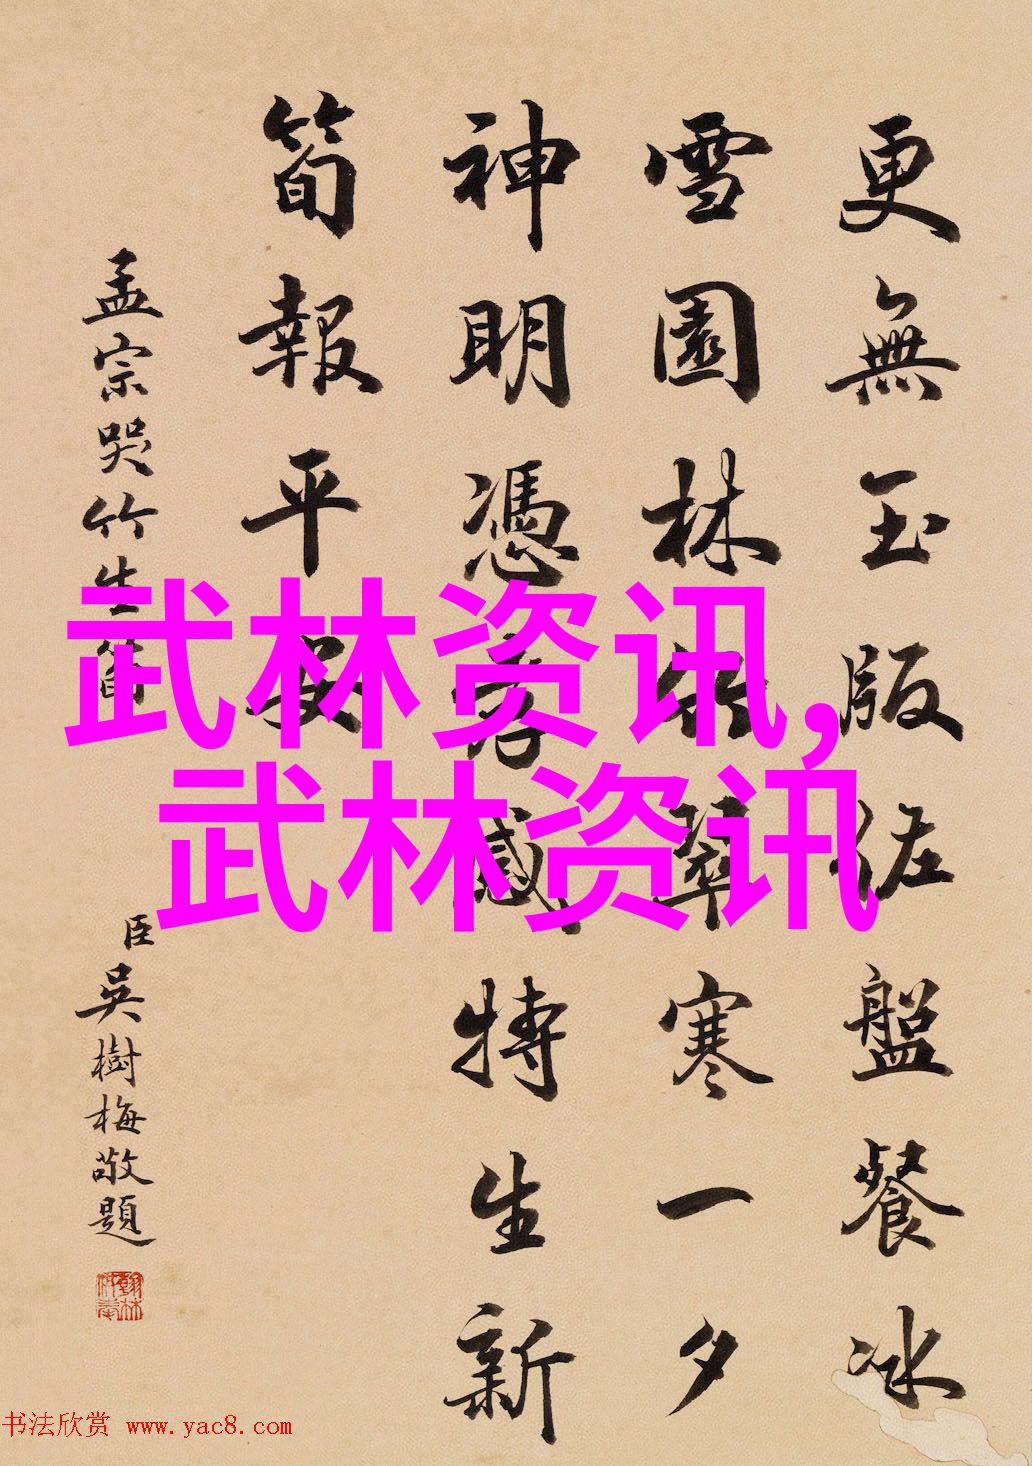 更無玉版佐盤餐冰
雪園林翠寒一夕
神明憑孝感特生新
筍報平安
孟宗哭竹生筍
臣吳樹梅敬題
武林资讯,
武林资讯
书法欣赏 www.yac8.com